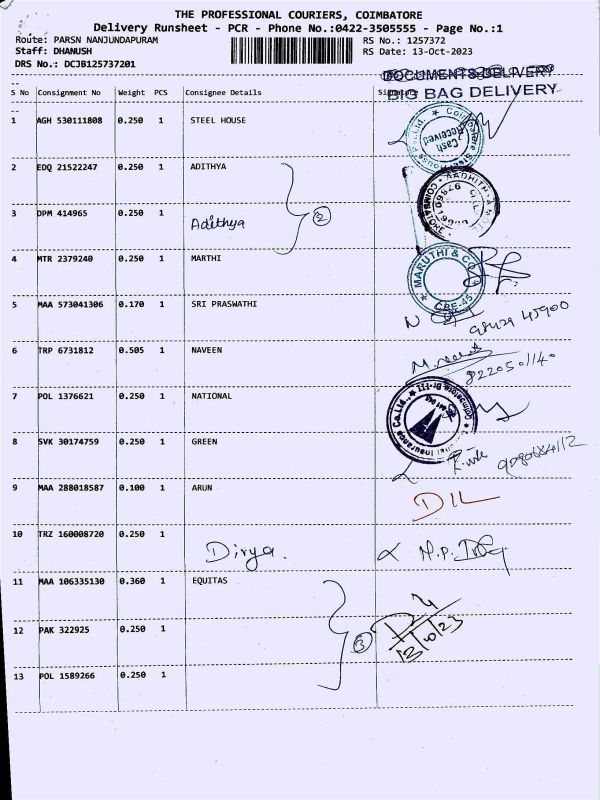 THE PROFESSIONAL COURIERS, COIMBATORE
Delivery Runsheet - PCR - Phone No.:0422-3505555 - Page No.:1
Route: PARSN NANJUNDAPURAM
RS No.: 1257372
Staff: DHANUSH
RS Date: 13-Oct-2023
DRS No.: DCJB125737201
BIG BAG DELIVERY
S No Consignment No Weight PCS Consignee Details Signature
1 AGH 530111808 0.250 1 STEEL HOUSE
Cash Received
2 EDQ 21522247 0.250 1 ADITHYA
3 DPM 414965 0.250 1 Adithya
2
4 MTR 2379240 0.250 1 MARTHI
MARUTHI & CO
CBE-45
5 MAA 573041306 0.170 1 SRI PRASWATHI
6 TRP 6731812 0.505 1 NAVEEN
8220501140
7 POL 1376621 0.250 1 NATIONAL
8 SVK 30174759 0.250 1 GREEN
9 MAA 288018587 0.100 1 ARUN
DIL
10 TRZ 160008720 0.250 1 Divya.
11 MAA 106335130 0.360 1 EQUITAS
12 PAK 322925 0.250 1
3
13/10/23
13 POL 1589266 0.250 1